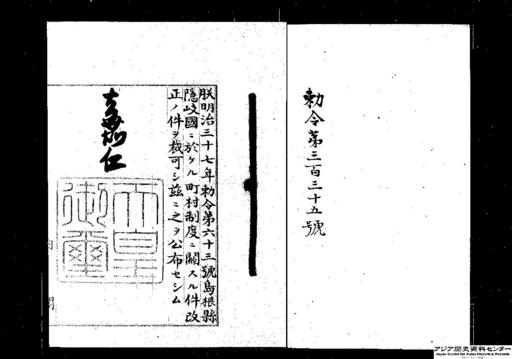 勅令第三百三十五號
朕明治三十七年勅令第六十三號島根縣
隠岐國ニ於ケル町村制度ニ關スル件改
正ノ件ヲ裁可シ茲ニ之ヲ公布セシム
嘉仁
天皇
御璽
アジア歴史資料センター
Japan Center for Asian Historical Records